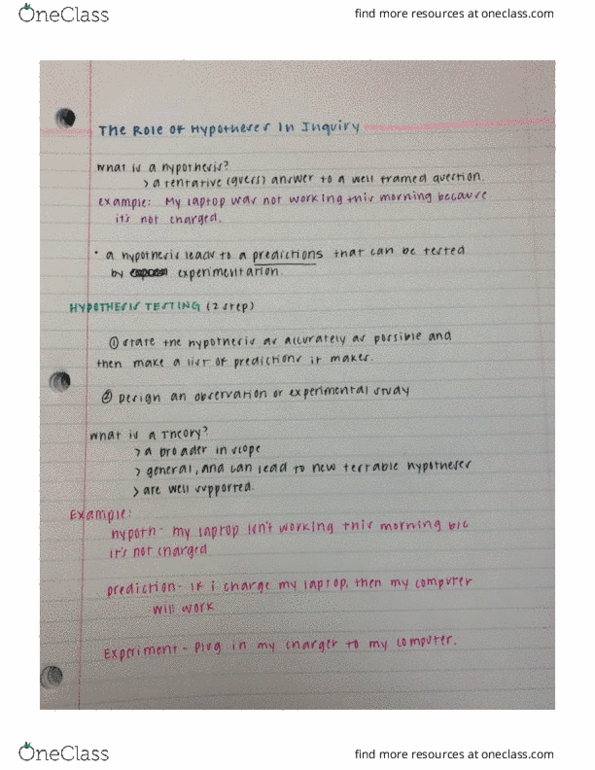 OneClass
find more resources at oneclass.com
The Role of Hypotheses In Inquiry
What is a hypothesis?
> a tentative (guess) answer to a well framed question.
example: My laptop was not working this morning because
it's not charged.
• a hypothesis leads to a predictions that can be tested
by experimentation.
HYPOTHESIS TESTING (2 step)
① state the hypothesis as accurately as possible and
then make a list of predictions it makes.
② Design an observation or experimental study
What is a Theory?
> a broader in scope
> general, and can lead to new testable hypotheses
> are well supported.
Example:
hypoth- my laptop isn't working this morning b/c
it's not charged
prediction- If i charge my laptop, then my computer
will work
Experiment - plug in my charger to my computer.
OneClass
find more resources at oneclass.com